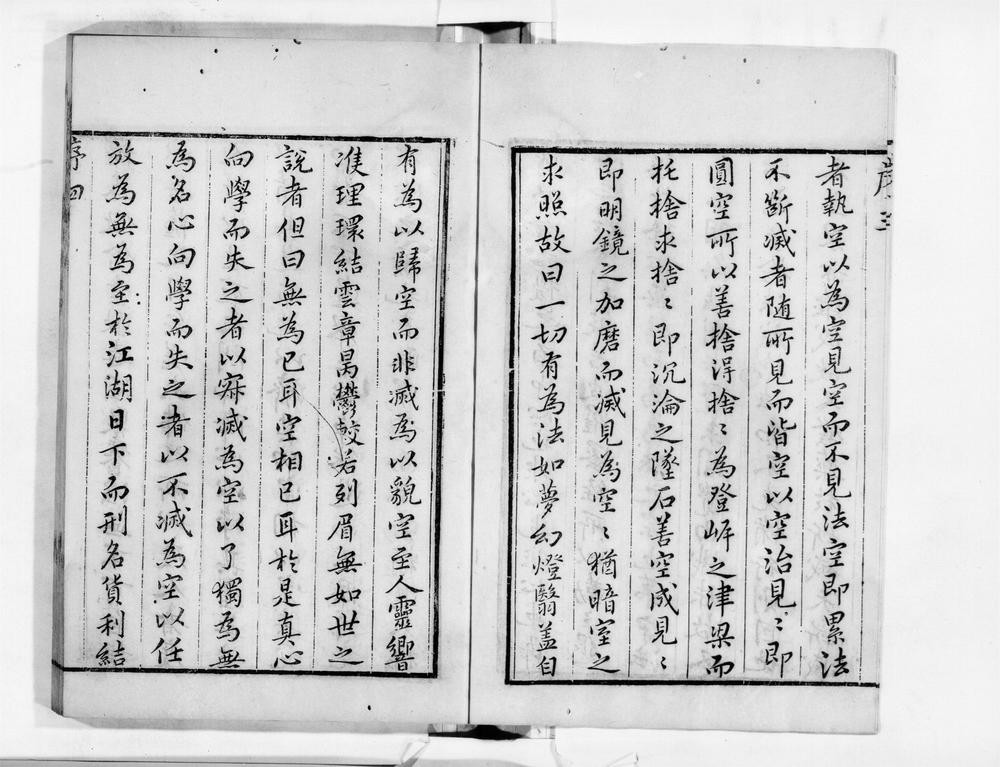 序三
者執空以為空見空而不見法空即累法
不斷滅者随所見而皆空以空治見〻即
圓空所以善捨得捨〻為登岸之津梁而
托捨求捨〻即沉淪之墜石善空成見〻
即明鏡之加磨而滅見為空〻猶暗室之
求照故曰一切有為法如夢幻燈翳盖自
有為以歸空而非滅為以貌空至人靈響
准理環結雲章昺欝較若列眉無如世之
說者但曰無為已耳空相已耳於是真心
向學而失之者以寂滅為空以了獨為無
為名心向學而失之者以不滅為空以任
放為無為至於江湖日下而刑名貨利結
序四